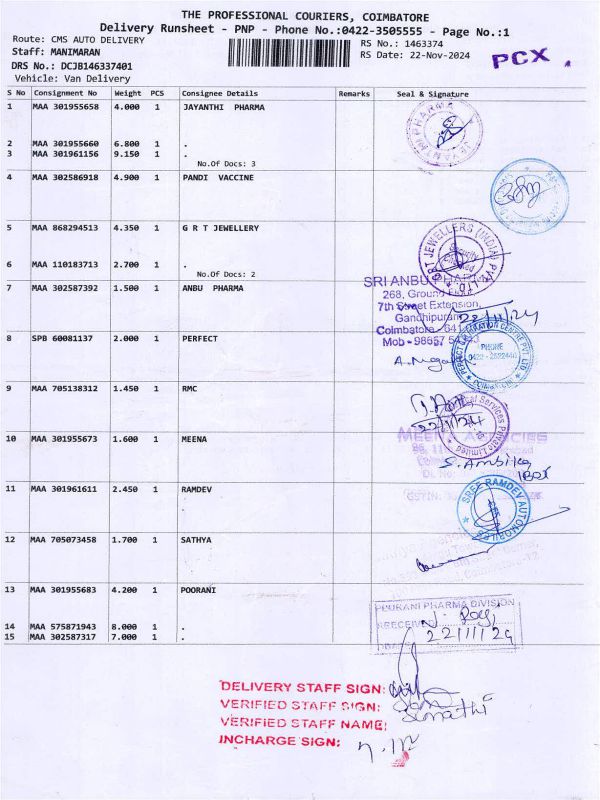 THE PROFESSIONAL COURIERS, COIMBATORE
Delivery Runsheet - PNP - Phone No.:0422-3505555 - Page No.:1
Route: CMS AUTO DELIVERY
RS No.: 1463374
Staff: MANIMARAN
RS Date: 22-Nov-2024
PCX
DRS No.: DCJB146337401
Vehicle: Van Delivery
S No Consignment No Weight PCS Consignee Details Remarks Seal & Signature
1 MAA 301955658 4.000 1 JAYANTHI PHARMA
2 MAA 301955660 6.800 1 .
3 MAA 301961156 9.150 1 .
No.Of Docs: 3
4 MAA 302586918 4.900 1 PANDI VACCINE
5 MAA 868294513 4.350 1 G R T JEWELLERY
6 MAA 110183713 2.700 1 .
No.Of Docs: 2
7 MAA 302587392 1.500 1 ANBU PHARMA
SRI ANBU PHARMA
268, Ground
7th Street Extension,
Gandhipuram
22/11/24
Coimbatore - 641
Mob - 98657 54
8 SPB 60081137 2.000 1 PERFECT
PHONE
0422 - 2522440
COIMBATORE
9 MAA 705138312 1.450 1 RMC
22/11/24
Services Private Limited
10 MAA 301955673 1.600 1 MEENA
MEENA AGENCIES
S. Ambika
11 MAA 301961611 2.450 1 RAMDEV
SREE RAMDEV AUTOMOBILES
12 MAA 705073458 1.700 1 SATHYA
13 MAA 301955683 4.200 1 POORANI
POURANI PHARMA DIVISION
RECEIVED
22/11/24
14 MAA 575871943 8.000 1 .
15 MAA 302587317 7.000 1 .
DELIVERY STAFF SIGN:
VERIFIED STAFF SIGN:
VERIFIED STAFF NAME:
INCHARGE SIGN: